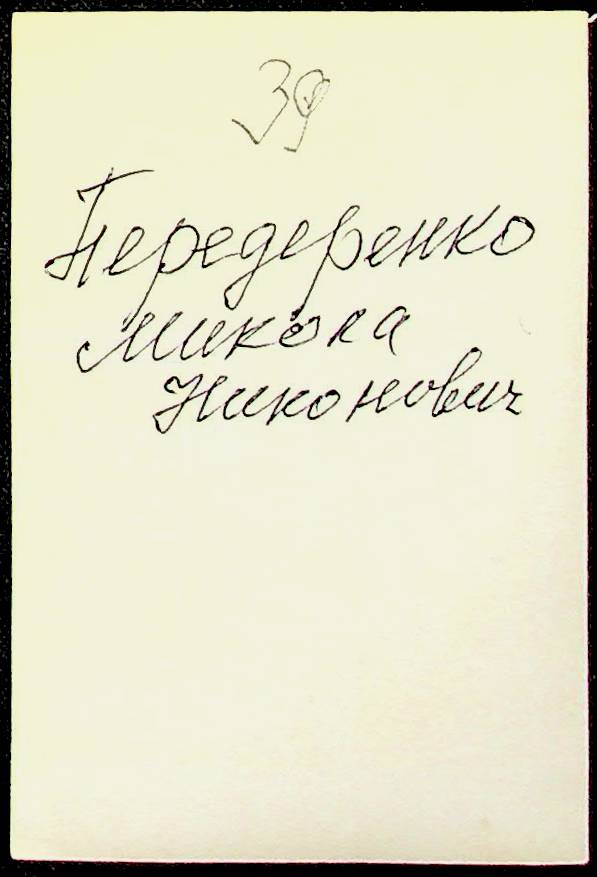 39
Передеренко
Микола
Никонович